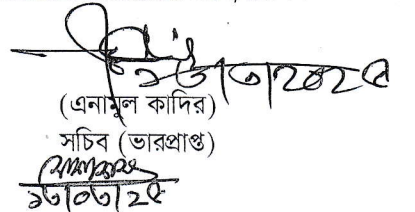 ১৩/৩/২০২৫
(এনামুল কাদির)
সচিব (ভারপ্রাপ্ত)
১৩/০৩/২৫